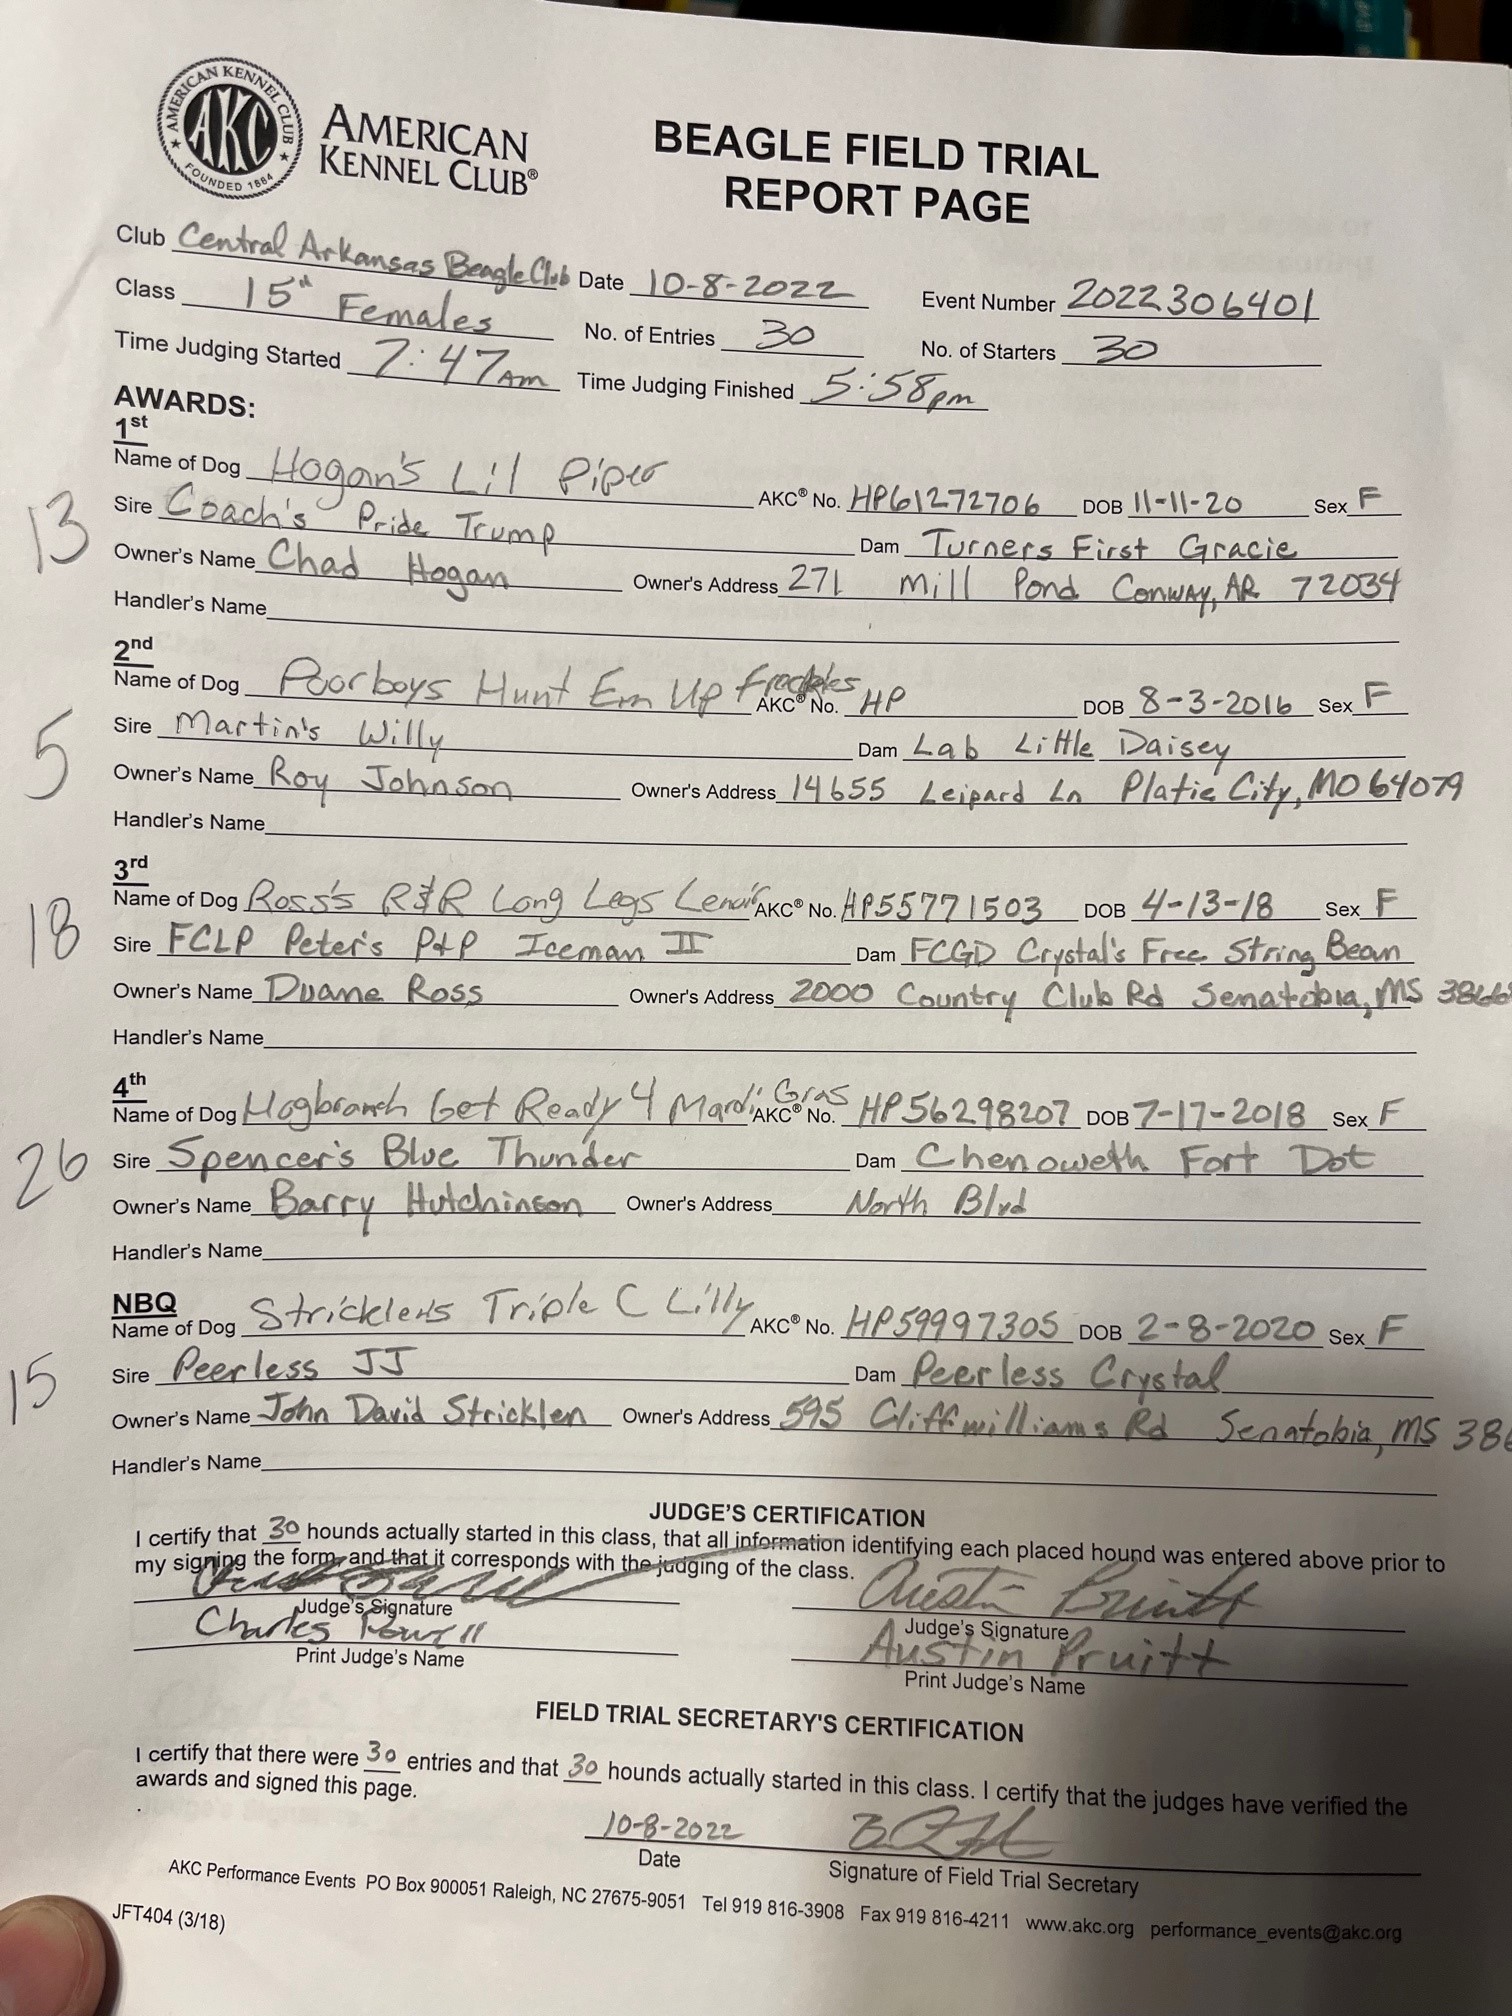 AMERICAN KENNEL CLUB
AKC
FOUNDED 1884
AMERICAN
KENNEL CLUB®
BEAGLE FIELD TRIAL
REPORT PAGE
Club Central Arkansas Beagle Club Date 10-8-2022 Event Number 2022306401
Class 15" Females No. of Entries 30 No. of Starters 30
Time Judging Started 7:47am Time Judging Finished 5:58pm
AWARDS:
1st
Name of Dog Hogan's Lil Piper AKC® No. HP61272706 DOB 11-11-20 Sex F
13
Sire Coach's Pride Trump Dam Turners First Gracie
Owner's Name Chad Hogan Owner's Address 271 Mill Pond Conway, AR 72034
Handler's Name
2nd
Name of Dog Poorboys Hunt Em Up Freckles AKC® No. HP DOB 8-3-2016 Sex F
5
Sire Martin's Willy Dam Lab Little Daisey
Owner's Name Roy Johnson Owner's Address 14655 Leipard Ln Platie City, MO 64079
Handler's Name
3rd
Name of Dog Ross's R&R Long Legs AKC® No. HP55771503 DOB 4-13-18 Sex F
18
Sire FCLP Peter's P&P Iceman II Dam FCGD Crystal's Free String Bean
Owner's Name Duane Ross Owner's Address 2000 Country Club Rd Senatobia, MS 3866
Handler's Name
4th
Name of Dog Hogbranch Get Ready 4 Mardi Gras AKC® No. HP56298207 DOB 7-17-2018 Sex F
26
Sire Spencer's Blue Thunder Dam Chenoweth Fort Dot
Owner's Name Barry Hutchinson Owner's Address North Blvd
Handler's Name
NBQ
Name of Dog Stricklen's Triple C Lilly AKC® No. HP59997305 DOB 2-8-2020 Sex F
15
Sire Peerless JJ Dam Peerless Crystal
Owner's Name John David Stricklen Owner's Address 595 Cliffwilliams Rd Senatobia, MS 386
Handler's Name
JUDGE'S CERTIFICATION
I certify that 30 hounds actually started in this class, that all information identifying each placed hound was entered above prior to
my signing the form, and that it corresponds with the judging of the class.
Austin Pruitt
Judge's Signature Judge's Signature
Charles Powell Austin Pruitt
Print Judge's Name Print Judge's Name
FIELD TRIAL SECRETARY'S CERTIFICATION
I certify that there were 30 entries and that 30 hounds actually started in this class. I certify that the judges have verified the
awards and signed this page.
10-8-2022
Date Signature of Field Trial Secretary
AKC Performance Events PO Box 900051 Raleigh, NC 27675-9051 Tel 919 816-3908 Fax 919 816-4211 www.akc.org performance_events@akc.org
JFT404 (3/18)